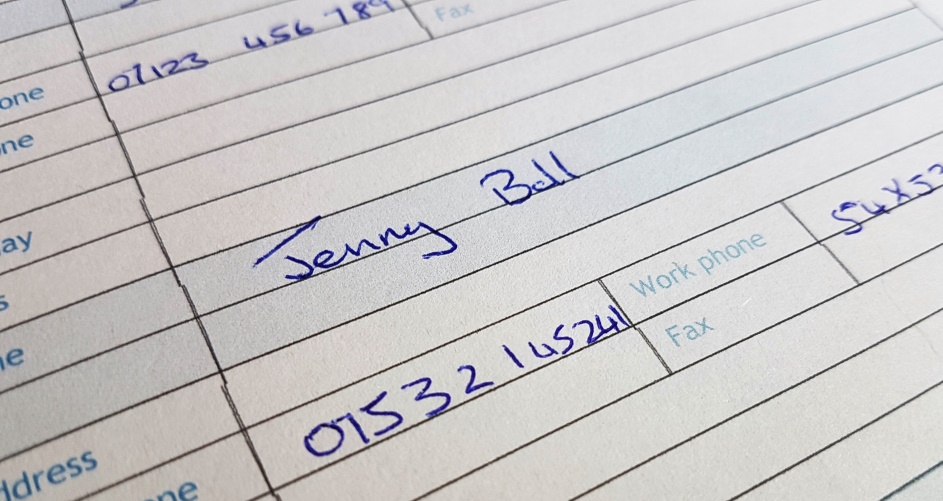 one 07123 456 789 Fax
ne
ay
s
Jenny Ball
ne
Work phone 54X53
01532 145241 Fax
ddress
ne